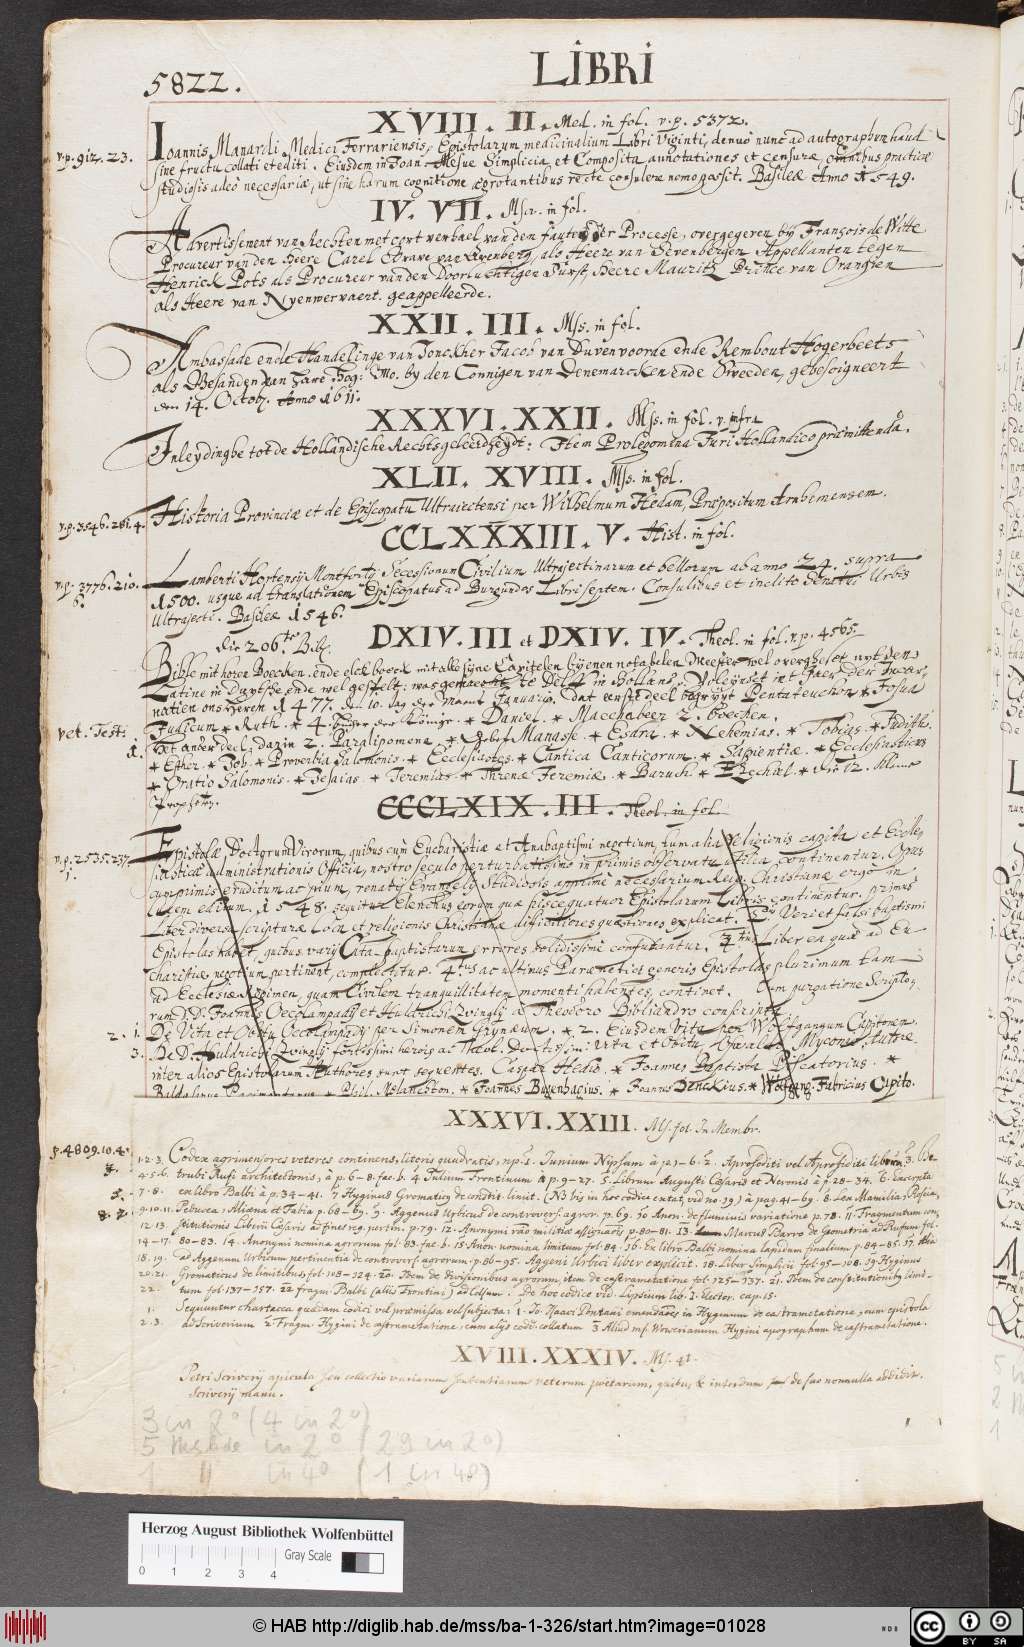 LIBRI
5822.
XVIII. II. Med. in fol. v.p. 5372.
v.p. 912. 23.
Ioannis Manardi Medici Ferrariensis, Epistolarum medicinalium Libri Viginti, denuò nunc ad autographon haud
sine fructu collati et editi. Eiusdem in Ioan. Mesue Simplicia, et Composita annotationes et censurae, omnibus practicae
studiosis adeò necessariae, ut sine harum cognitione aegrotantibus recte consulere nemo possit. Basileae Anno 1549.
IV. VII. Msc. in fol.
Advertissement van Rechten met cort verhael van den fauten der Processe, overgegeven bij François de Witte
Procureur van den Heere Carel Grave van Arenberg, als Heere van Sevenbergen Appellanten tegen
Henrick Pots als Procureur van den Doorluchtigen Furst, Heere Mauritz Prince van Orangien
als Heere van Nyenwervaert. geappelleerde.
XXII. III. Mss. in fol.
Ambassade ende Handelinge van Jonckher Jacob van Duvenvoorde ende Rembout Hogerbeets
als Gesanden van Hare Hog: Mo. by den Connigen van Denemarcken ende Sweeden, gebesoigneert
den 14. Octob. Anno 1611.
XXXVI. XXII. Mss. in fol. v. infra
Inleydinghe tot de Hollandische Rechtsgeleerdheydt: Item Prolegomina Juri Hollandico praemittenda.
XLII. XVIII. Mss. in fol.
v.p. 3546. 261. 4.
Historia Provinciae et de Episcopatu Ultraiectensi per Wilhelmum Hedam, Praepositum Arnhemensem.
CCLXXXIII. V. Hist. in fol.
v.p. 3776. 210.
6.
Lamberti Hortensij Montfortij Secessionum Civilium Ultrajectinarum et bellorum ab anno 24. supra
1500. usque ad translationem Episcopatus ad Burgundos Libri septem. Consulibus et inclito Senatui Urbis
Ultrajecti. Basileae 1546.
DXIV. III et DXIV. IV. Theol. in fol. v.p. 4565.
die 206.te Bibl.
Bible mit horen Boecken, ende elck boeck mit alle sijne Capitelen bij enen notabelen Meester wel overgheset uyt den
Latine in duytsche ende wel gestelt: was gemaeckt te Delf in Hollant. Voleyndet int Jaer der Incar-
natien ons Heren 1477. den 10. dag der Maent Januario. dat eerste deel begrijpt Pentateuchum * Josua
vet. Test:
Judicum * Ruth. * 4. Bücher der Könige. * Daniel. * Macchabeer 2. boechen.
1.
Het ander deel, darin 2. Paralipomena. * Gebet Manasse * Esdra * Nehemias. * Tobias * Judith
* Esther. * Job. * Proverbia Salomonis. * Ecclesiastes. * Cantica Canticorum. * Sapientiae. * Ecclesiasticus
* Oratio Salomonis. * Jesaias * Jeremias * Threnae Jeremiae. * Baruch * Ezechiel * die 12. kleine
Propheten.
CCCLXIX. III. Theol. in fol.
v.p. 2535. 237.
1.
Epistolae, Doctorum Virorum, quibus cum Eucharistiae et Anabaptismi negotium, tum alia religionis capita et Eccle-
siasticae administrationis Officia, nostro seculo perturbatissimo in primis observatu utilia, continentur. Opus
cum primis eruditum ac pium, renatis Evangelij Studiosis apprimè necessarium Reip. Christianae ergò in
lucem editum. 1548. sequitur Elenchus eorum quae hisce quatuor Epistolarum Libris continentur. primus
Liber diversa scripturae loca et religionis Christianae difficiliores quaestiones explicat. 2.dus Veri et falsi baptismi
Epistolas habet, quibus varij Catabaptistarum errores solidissimè confutantur. 3.tius Liber ea quae ad Eu-
charistiae negotium pertinent, complectitur. 4.tus ac ultimus Paraenetici generis Epistolas plurimum tam
ad Ecclesiae Regimen, quam Civilem tranquillitatem momenti habentes, continet. Cum purgatione Scripto-
rum D.D. Joannis Oecolampadij et Huldrichi Zwinglij à Theodoro Bibliandro conscripta
1. De Vita et Obitu Oecolampadij per Simonem Grynaeum. * 2. Eiusdem Vita per Wolfgangum Capitonem.
2. 3. De D. Huldrichi Zwinglij fortissimi herois ac Theol. Doctissimi vita et Obitu, Osvaldo Myconio Autore
inter alios Epistolarum Authores sunt sequentes. Caspar Hedio. * Joannes Baptista Piscatorius. *
Baldasarus Pacimontanus * Phil. Melanchton. * Joannes Bugenhagius. * Joannes Denckius. * Wolfgang. Fabricius Capito.
XXXVI. XXIII. Ms. fol. In Membr.
p. 4809. 10. 4.
1. 2. 3. Codex agrimensores veteres continens, litoris quadratis, np. 1. Junium Nipsum à p. 1-6. 2. Aprofoditi vel Aprofiditi librum. 3. Vi-
4. 5. 6. trubi Rufi architectonis, à p. 6-8. fac. b. 4 Julium Frontinum à p. 9-27. 5. Librum Augusti Caesaris et Neronis à p. 28-34. 6. Excerpta
7. 8. ex libro Balbi à p. 34-41. 7 Hyginus Gromaticg de condit. limit. (NB bis in hoc codice extat, vid no. 19) à pag. 41-69. 8. Lex Mamilia, Roscia,
9. 10. 11. Peducea, Alliena et Fabia p. 68-69. 9. Aggenus Urbicus de controvers. agror. p. 69. 10 Anon. de fluminis variatione p. 78. 11. Fragmentum con-
12. 13. stitutionis Liberii Caesaris ad fines reg. pertin. p. 79. 12. Anonymi p. 80-81. 13. Marcus Barro de Geometria ad Rufum fol.
14-17. 80-83. 14. Anonymi nomina agrorum fol. 83. fac. b. 15. Anon. nomina limitum fol. 84. 16. Ex libro Balbi nomina lapidum finalium p. 84-85. 17. Alia
18. 19. ad Aggenum Urbicum pertinentia de controvers. agrorum p. 86-95. Aggeni Urbici liber explicit. 18. Liber Simplicii fol. 95-108. 19 Hyginus
20. 21. Gromaticus de limitibus fol. 108-124. 20. Item de divisionibus agrorum, item de castrametatione fol. 125-137. 21. Item de constitutionibg limi-
22. tum fol. 137-157. 22 fragm. Balbi (aliis Frontini) ad Celsum. De hoc codice vid. Lipsium lib. I. Elector. cap. 15.
1. Sequuntur chartacea quaedam codici vel praemissa vel subjecta: 1. Jo. Isaaci Pontani emendationes in Hyginum de castrametatione, cum epistola
2. 3. ad Scriverium 2. Fragm. Hygini de castrametatione, cum alijs codd. collatum 3. Aliud ms. Wowerianum Hygini apographum de castrametatione.
XVIII. XXXIV. Ms. 4t.
Petri Scriverij apicula seu collectio variarum sententiarum veterum poetarum, quibus & interdum de suo nonnulla addidit.
Scriverij manu.
3 in 2° (4 in 2°)
5 Msbde in 2° (29 in 2°)
1 " in 4° (1 in 4°)
Herzog August Bibliothek Wolfenbüttel
Gray Scale
0 1 2 3 4
© HAB http://diglib.hab.de/mss/ba-1-326/start.htm?image=01028
cc BY SA